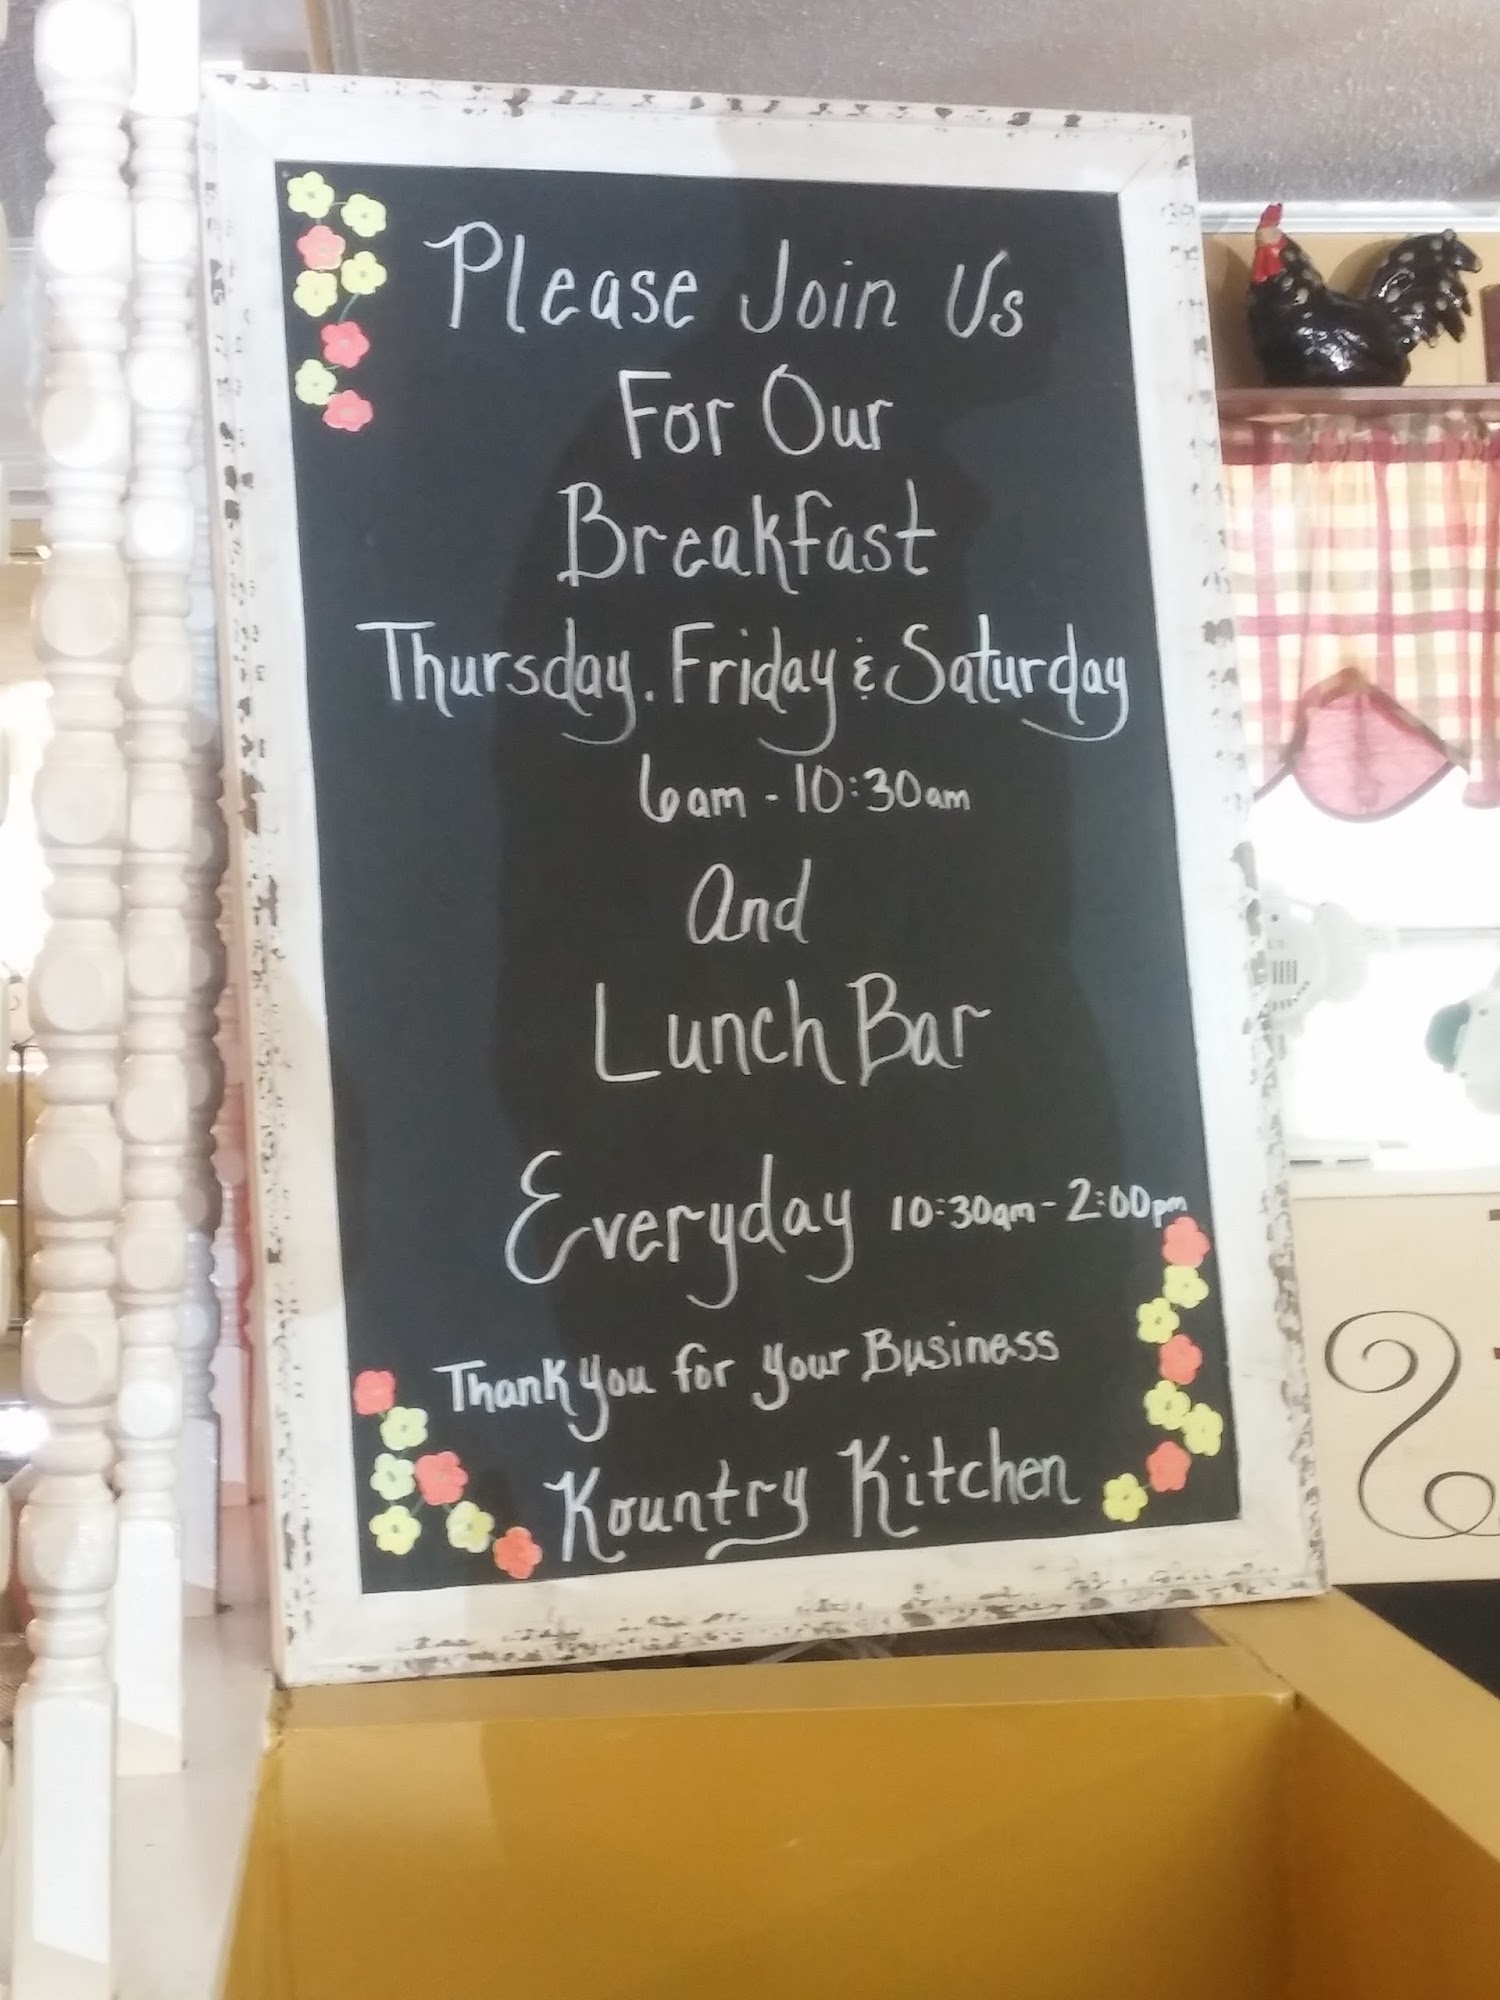 Please Join Us
For Our
Breakfast
Thursday. Friday & Saturday
6am - 10:30am
And
Lunch Bar
Everyday 10:30am - 2:00pm
Thank you for your Business
Kountry Kitchen